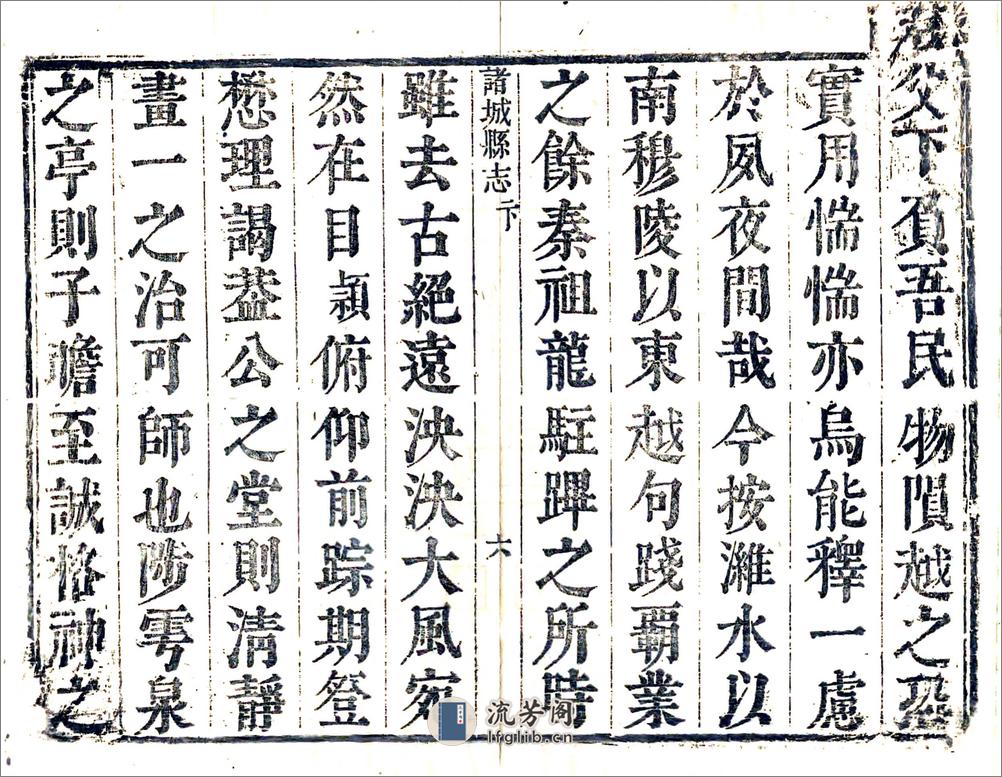 父下負吾民物隕越之恐
實用惴惴亦烏能釋一慮
於夙夜間哉今按濰水以
南穆陵以東越句踐霸業
之餘秦祖龍駐蹕之所時
諸城縣志 下 六
雖去古絕遠泱泱大風宛
然在目顈俯仰前踪期登
懋理謁葢公之堂則清靜
畫一之治可師也陟雩泉
之亭則子瞻至誠格神之
流芳阁
lfglib.cn